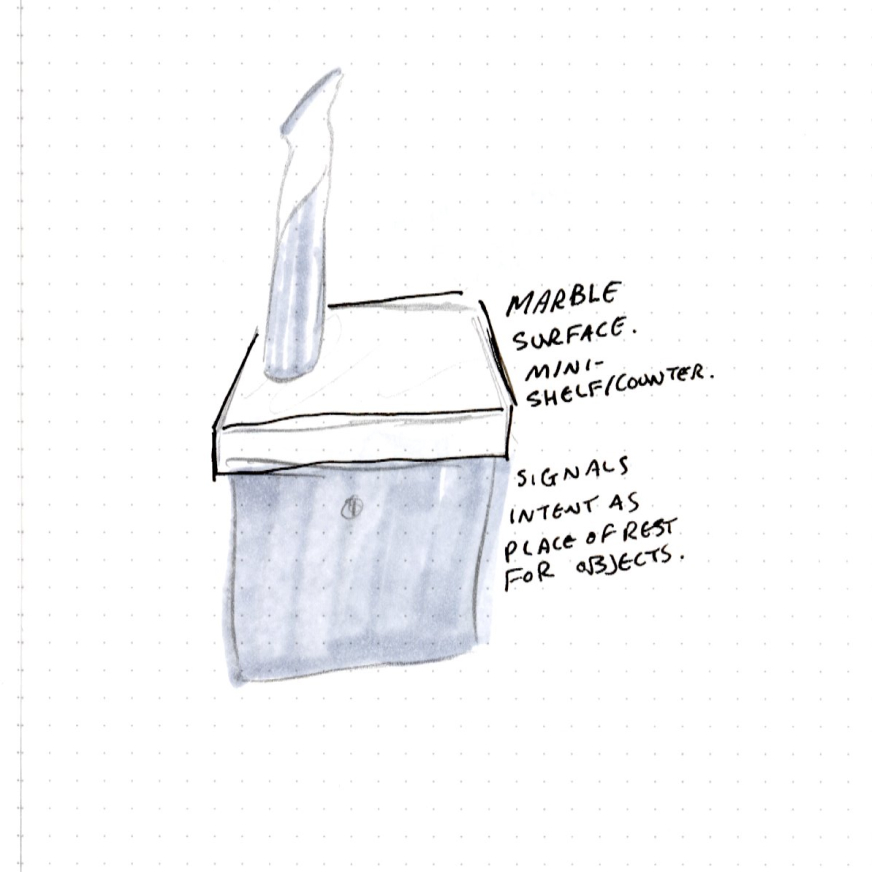 MARBLE
SURFACE.
MINI-
SHELF/COUNTER.
SIGNALS
INTENT AS
PLACE OF REST
FOR OBJECTS.